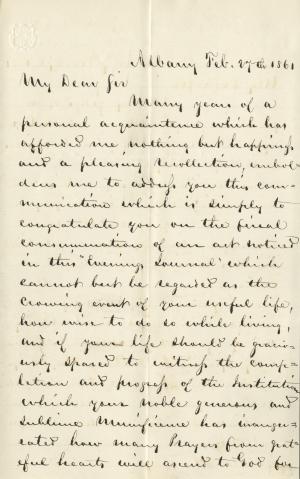 Albany Feb. 27th 1861
My Dear Sir
Many years of a
personal acquaintence which has
afforded me nothing but happiness
and a pleasing recollection, embol-
dens me to address you this com-
munication which is simply to
congratulate you on the final
consummation of an act noticed
in this "Evenings Journal" which
cannot but be regarded as the
Crowing event of your useful life,
how wise to do so while living,
and if your life should be graci-
ously spared to witness the comp-
letion and progress of the Institution
which your noble generous and
sublime Munificence has inaugu-
rated how many Prayers from grat-
eful hearts will ascend to God for